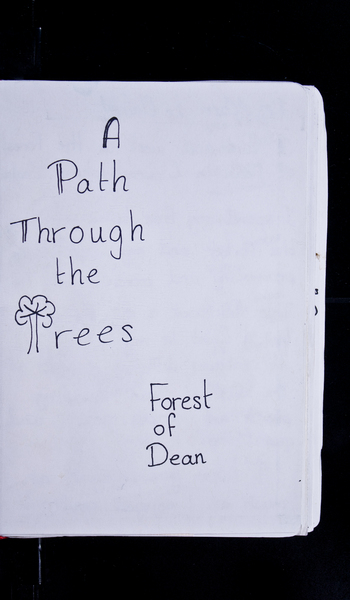 A
Path
Through
the
Trees
Forest
of
Dean